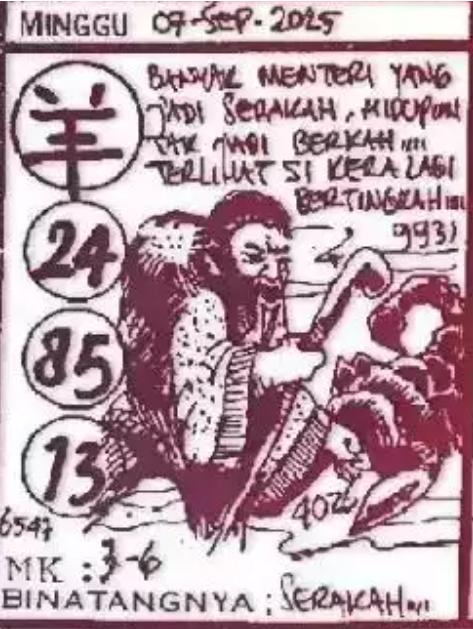 MINGGU 07-SEP-2025
BANYAK MENTERI YANG
JADI SERAKAH, HIDUPUN
TAK JADI BERKAH....
TERLIHAT SI KERA LAGI
BERTINGKAH....
9931
羊
24
85
13
6547
4026
MK : 3-6
BINATANGNYA : SERAKAH....